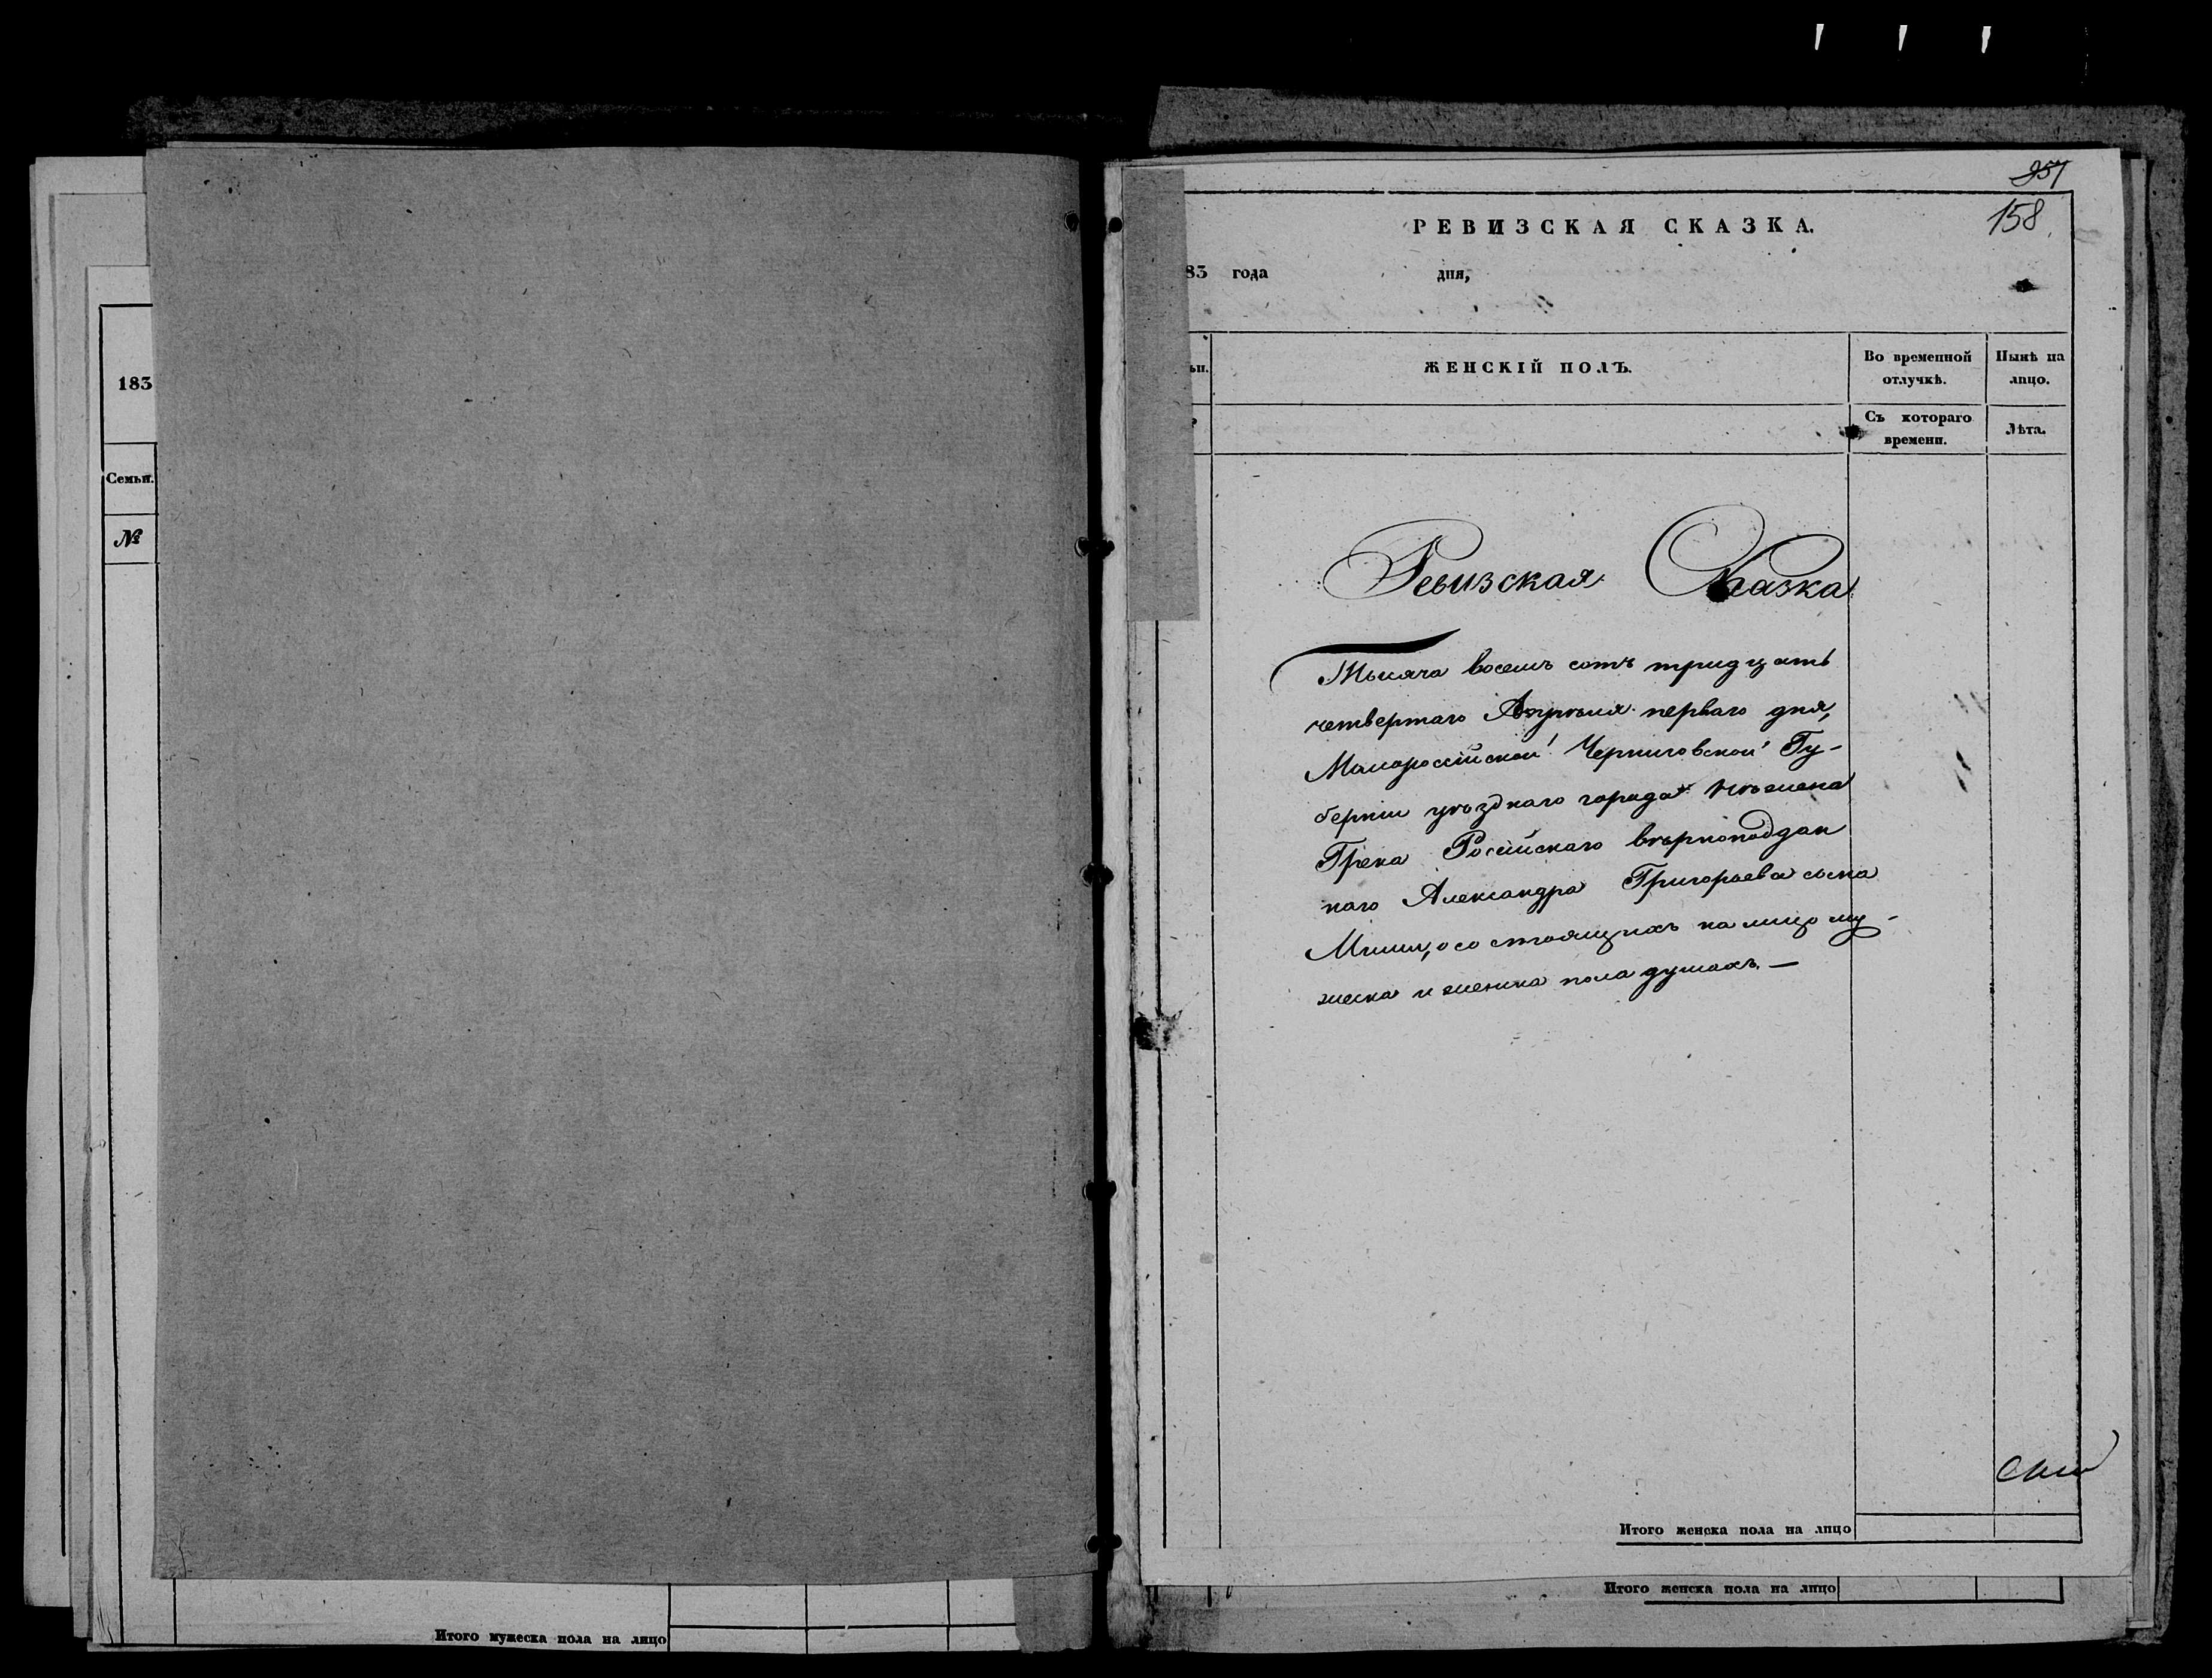 183
Семьи.
№
Итого мужеска пола на лицо
257
158
РЕВИЗСКАЯ СКАЗКА.
83 года дня,
ьи. ЖЕНСКІЙ ПОЛЪ. Во временной отлучкѣ. Нынѣ на лицо.
Съ котораго времени. Лѣта.
Ревизская Сказка
Тысяча восемь сотъ тридцать
четвертаго Апрѣля перваго дня,
Малороссійской Черниговской Гу-
берніи уѣзднаго города Нѣжина
Грека Російскаго вѣрноподдан
наго Александра Григорьева сына
о состоящихъ на лицо му-
жеска и женска пола душахъ.—
Итого женска пола на лицо
Итого женска пола на лицо